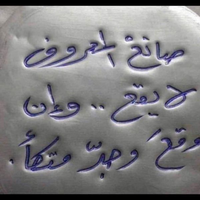 صانعُ المعروف
لا يقع .. وإن
وقعَ وجدَ متكأً.